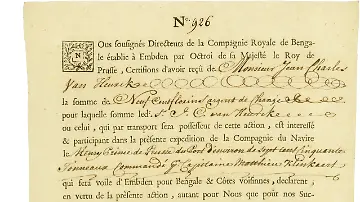 N.º 926
NOus soussignés Directeurs de la Compagnie Royale de Benga-
le établie à Embden par Octroi de sa Majesté le Roy de
Prusse, Certifions d'avoir reçu de Monsieur Jean Charles
Van Heurck
la somme de Neuf Cent florins argent de Change
pour laquelle somme ledt. Sr. J. C. van Heurck
ou celui, qui par transport sera possesseur de cette action, est interessé
& participant dans la présente expedition de la Compagnie du Navire
le Henry Prince de Prusse du Port d'environ de Sept cent Cinquante
Tonneaux Commandé Capitaine Matthieu
qui fera voile d'Embden pour Bengale & Côtes Voisines, declarent,
en vertu de la présente action, autant pour Nous que pour nos Suc-